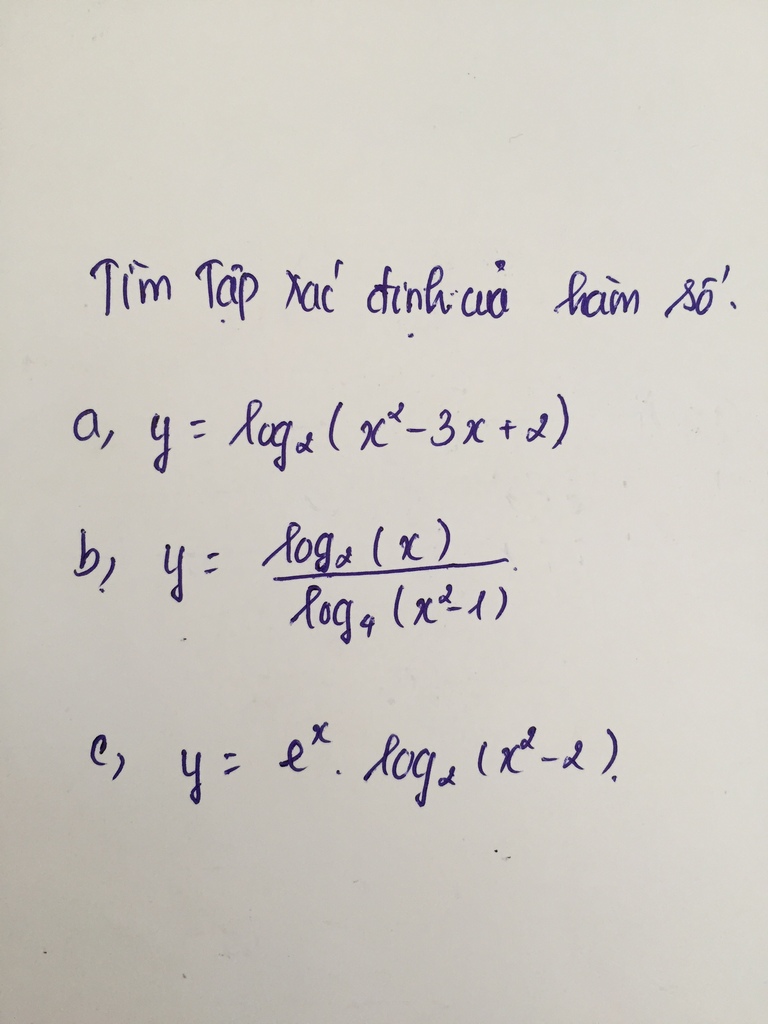 Tìm Tập xác định của hàm số.
a, y = log₂(x² - 3x + 2)
b, y = log₂(x) / log₄(x² - 1)
c, y = eˣ. log₂(x² - 2).